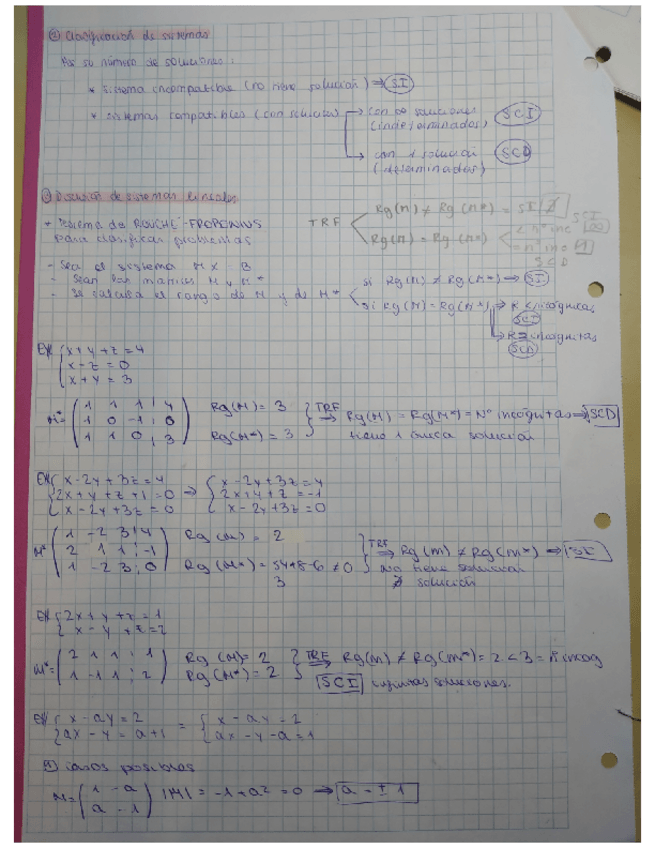 ② Clasificación de sistemas
Por su número de soluciones:
* Sistema incompatible (no tiene solución) ⇒ SI
* Sistemas compatibles (con solución) → con ∞ soluciones SCI
(indeterminados)
→ con 1 solución SCD
(determinados)
③ Discusión de sistemas lineales
* Teorema de ROUCHÉ-FROBENIUS
para clasificar problemas
TRF
Rg(M) ≠ Rg(M*) = SI ∄
Rg(M) = Rg(M*) < nº inc ∞ SCI
= nº inc 1
SCD
- Sea el sistema MX = B
- Sean las matrices M y M*
- Se calcula el rango de M y de M*
si Rg(M) ≠ Rg(M*) → SI
si Rg(M) = Rg(M*) → R < incógnitas
SCI
→ R = incógnitas
SCD
EX { x+y+z=4
x-z=0
x+y=3
M* = ( 1 1 1 ¦ 4 Rg(M) = 3
1 0 -1 ¦ 0
1 1 0 ¦ 3 ) Rg(M*) = 3
} TRF ⇒ Rg(M) = Rg(M*) = Nº incógnitas ⇒ SCD
tiene 1 única solución
EX { x-2y+3z=4 → { x-2y+3z=4
2x+y+z+1=0 2x+y+z=-1
x-2y+3z=0 x-2y+3z=0
M* ( 1 -2 3 ¦ 4 Rg(M) = 2
2 1 1 ¦ -1
1 -2 3 ¦ 0 ) Rg(M*) = 54+8-6 ≠ 0
3
} TRF ⇒ Rg(M) ≠ Rg(M*) ⇒ SI
No tiene solución
∄ solución
EX { 2x+y+z=1
x-y+z=2
M* = ( 2 1 1 ¦ 1 Rg(M) = 2
1 -1 1 ¦ 2 ) Rg(M*) = 2
} TRF ⇒ Rg(M) ≠ Rg(M*) = 2 < 3 = nº incog
SCI infinitas soluciones.
EX { x-ay=2 = { x-ay=2
ax-y=a+1 ax-y-a=1
① Casos posibles
M = ( 1 -a
a -1 ) |M| = -1+a² = 0 → a = ±1